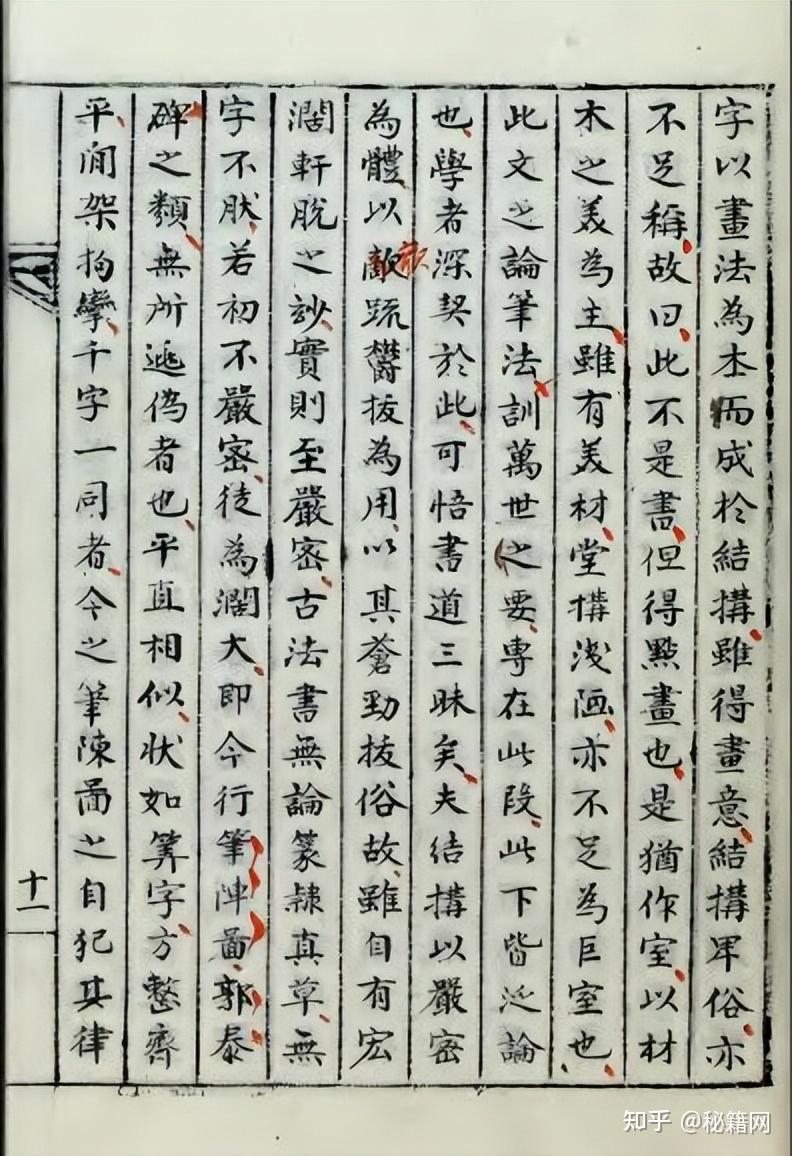 字以畫法為本而成於結搆雖得畫意結搆卑俗亦
不足稱故曰此不是書但得點畫也是猶作室以材
木之美為主雖有美材堂搆淺陋亦不足為巨室也
此文之論筆法訓萬世之要專在此段此下皆泛論
也學者深契於此可悟書道三昧矣夫結搆以嚴密
為體以敵散踈欝拔為用以其蒼勁拔俗故雖自有宏
濶軒脫之妙實則至嚴密古法書無論篆隷真草無
字不肰若初不嚴密徒為濶大即今行筆陣啚郭泰
碑之類無所逃偽者也平直相似狀如筭字方整齊
平間架拘攣千字一同者今之筆陳啚之自犯其律
十一
知乎 @秘籍网